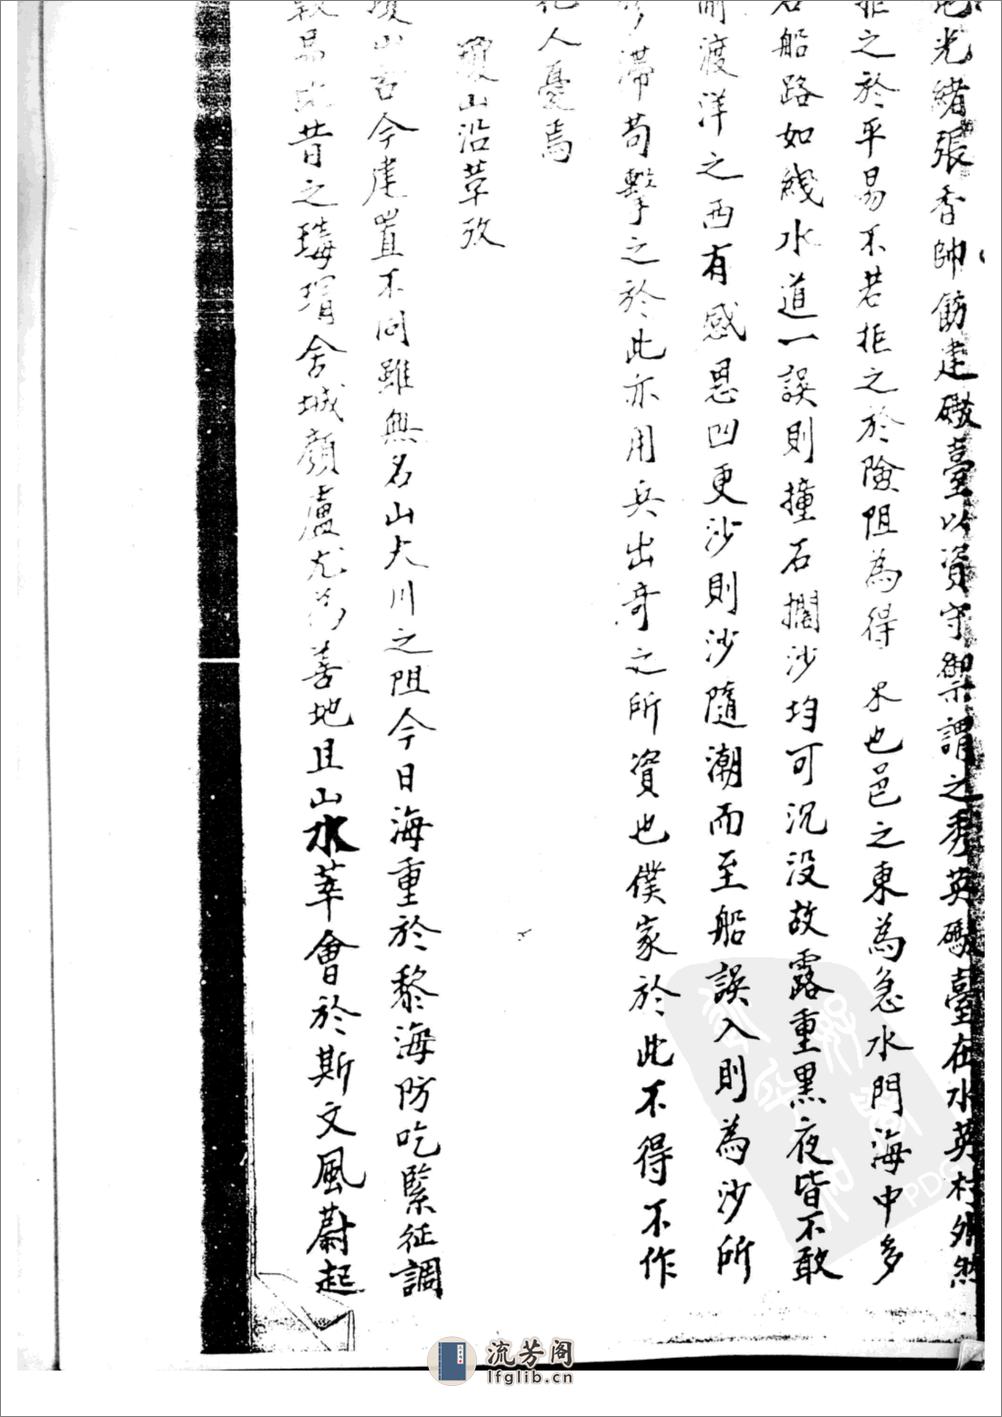 光緒張香帥飭建礮臺以資守禦謂之秀英礮臺在水英村外然
拒之於平易不若拒之於險阻為得 也邑之東為急水門海中多
石船路如綫水道一誤則撞石擱沙均可沉没故露重黑夜皆不敢
渡洋之西有感恩凹更沙則沙隨潮而至船誤入則為沙所
滞苟擊之於此亦用兵出奇之所資也僕家於此不得不作
人憂焉
瓊山沿革攷
瓊山 今建置不同雖無名山大川之阻今日海重於黎海防吃緊征調
昔之瑇瑁舍城顏盧尤為善地且山水萃會於斯文風蔚起
流芳阁
lfglib.cn
PDG